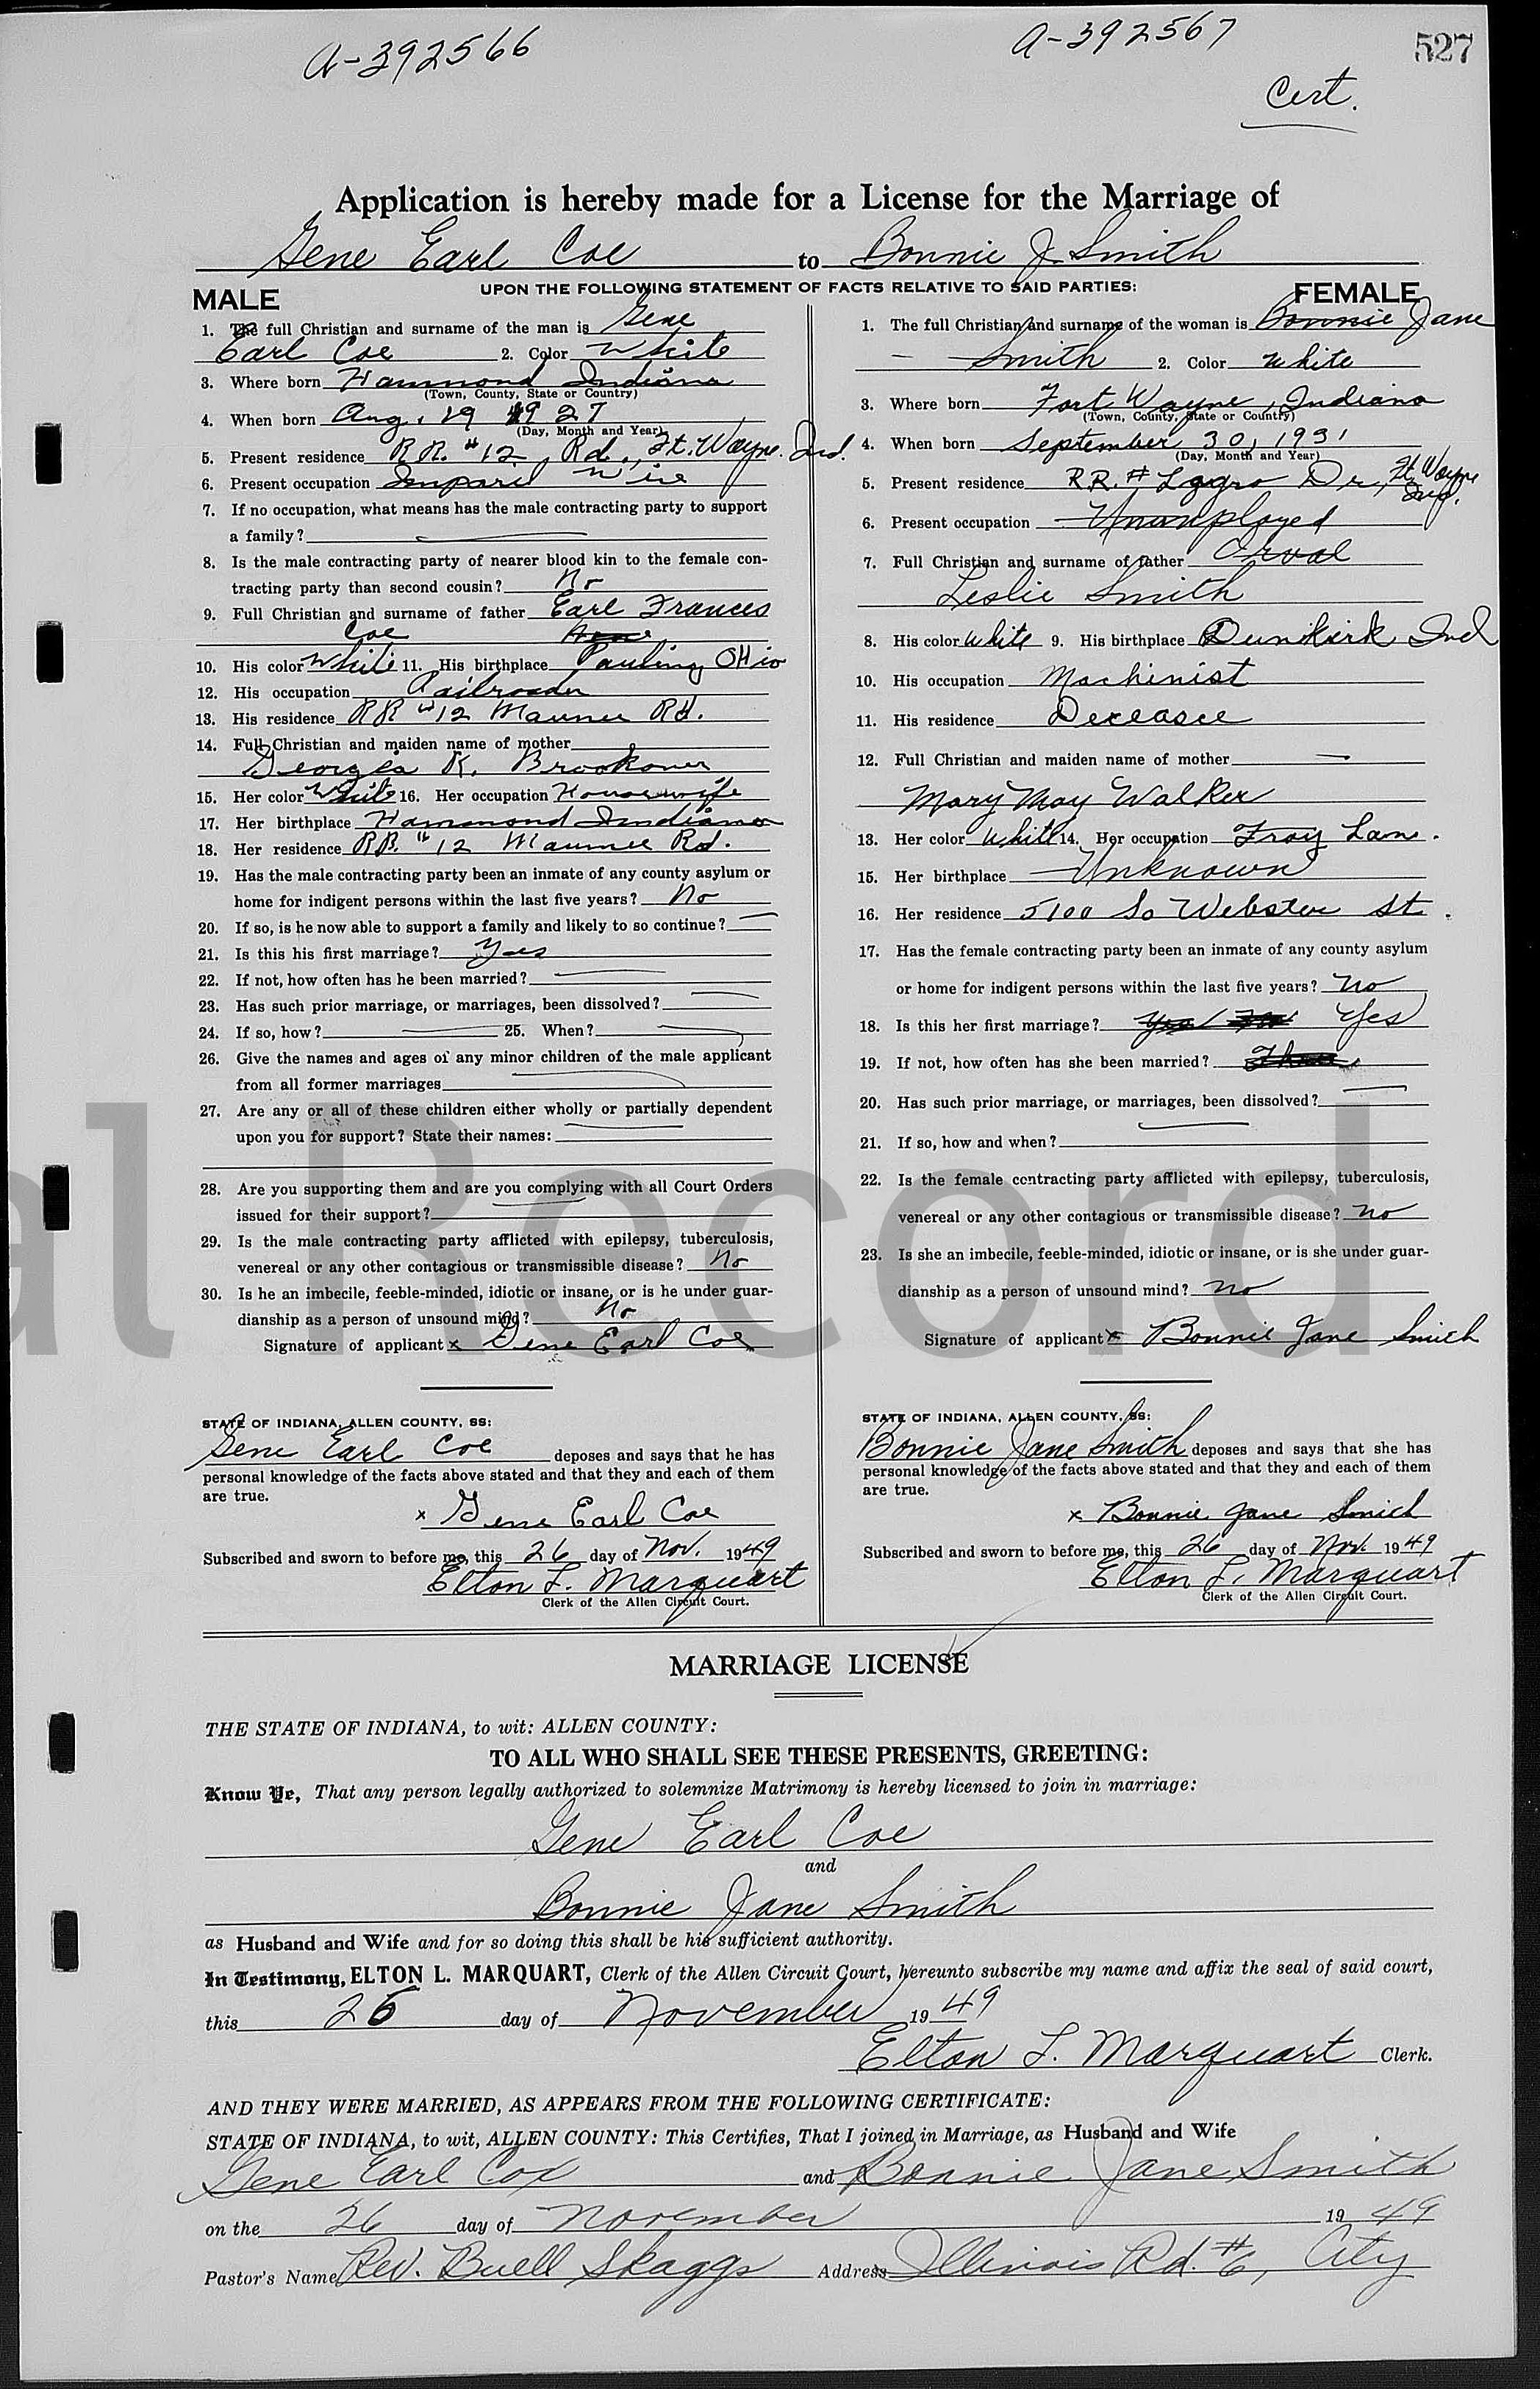 A-392566
A-392567
527
Cert.
Application is hereby made for a License for the Marriage of
Gene Earl Coe to Bonnie J. Smith
UPON THE FOLLOWING STATEMENT OF FACTS RELATIVE TO SAID PARTIES:
MALE
1. The full Christian and surname of the man is Gene
Earl Coe 2. Color White
3. Where born Hammond Indiana
(Town, County, State or Country)
4. When born Aug. 19 1927
(Day, Month and Year)
5. Present residence R.R. #12, Rd., Ft. Wayne. Ind.
6. Present occupation Wire
7. If no occupation, what means has the male contracting party to support
a family?
8. Is the male contracting party of nearer blood kin to the female con-
tracting party than second cousin? No
9. Full Christian and surname of father Earl Frances
Coe
10. His color White 11. His birthplace Pauling OHio
12. His occupation Railroader
13. His residence RR #12 Maumee Rd.
14. Full Christian and maiden name of mother
Georgia K. Brookover
15. Her color White 16. Her occupation Housewife
17. Her birthplace Hammond Indiana
18. Her residence RR. #12 Maumee Rd.
19. Has the male contracting party been an inmate of any county asylum or
home for indigent persons within the last five years? No
20. If so, is he now able to support a family and likely to so continue?
21. Is this his first marriage? Yes
22. If not, how often has he been married?
23. Has such prior marriage, or marriages, been dissolved?
24. If so, how? 25. When?
26. Give the names and ages of any minor children of the male applicant
from all former marriages
27. Are any or all of these children either wholly or partially dependent
upon you for support? State their names:
28. Are you supporting them and are you complying with all Court Orders
issued for their support?
29. Is the male contracting party afflicted with epilepsy, tuberculosis,
venereal or any other contagious or transmissible disease? No
30. Is he an imbecile, feeble-minded, idiotic or insane, or is he under guar-
dianship as a person of unsound mind? No
Signature of applicant x Gene Earl Coe
STATE OF INDIANA, ALLEN COUNTY, SS:
Gene Earl Coe deposes and says that he has
personal knowledge of the facts above stated and that they and each of them
are true.
x Gene Earl Coe
Subscribed and sworn to before me, this 26 day of Nov. 1949
Elton L. Marquart
Clerk of the Allen Circuit Court.
FEMALE
1. The full Christian and surname of the woman is Bonnie Jane
Smith 2. Color White
3. Where born Fort Wayne, Indiana
(Town, County, State or Country)
4. When born September 30, 1931
(Day, Month and Year)
5. Present residence R.R. # Dr., Ft Wayne
Ind.
6. Present occupation Unemployed
7. Full Christian and surname of father Orval
Leslie Smith
8. His color White 9. His birthplace Dunkirk Ind
10. His occupation Machinist
11. His residence Decease
12. Full Christian and maiden name of mother
Mary May Walker
13. Her color White 14. Her occupation
15. Her birthplace Unknown
16. Her residence 5100 So Webster St.
17. Has the female contracting party been an inmate of any county asylum
or home for indigent persons within the last five years? No
18. Is this her first marriage? Yes Yes
19. If not, how often has she been married?
20. Has such prior marriage, or marriages, been dissolved?
21. If so, how and when?
22. Is the female contracting party afflicted with epilepsy, tuberculosis,
venereal or any other contagious or transmissible disease? No
23. Is she an imbecile, feeble-minded, idiotic or insane, or is she under guar-
dianship as a person of unsound mind? No
Signature of applicant x Bonnie Jane Smith
STATE OF INDIANA, ALLEN COUNTY, SS:
Bonnie Jane Smith deposes and says that she has
personal knowledge of the facts above stated and that they and each of them
are true.
x Bonnie Jane Smith
Subscribed and sworn to before me, this 26 day of Nov. 1949
Elton L. Marquart
Clerk of the Allen Circuit Court.
al Record
MARRIAGE LICENSE
THE STATE OF INDIANA, to wit: ALLEN COUNTY:
TO ALL WHO SHALL SEE THESE PRESENTS, GREETING:
Know Ye, That any person legally authorized to solemnize Matrimony is hereby licensed to join in marriage:
Gene Earl Coe
and
Bonnie Jane Smith
as Husband and Wife and for so doing this shall be his sufficient authority.
In Testimony, ELTON L. MARQUART, Clerk of the Allen Circuit Court, hereunto subscribe my name and affix the seal of said court,
this 26 day of November 1949
Elton L. Marquart Clerk.
AND THEY WERE MARRIED, AS APPEARS FROM THE FOLLOWING CERTIFICATE:
STATE OF INDIANA, to wit, ALLEN COUNTY: This Certifies, That I joined in Marriage, as Husband and Wife
Gene Earl Cox and Bonnie Jane Smith
on the 26 day of November 1949
Pastor's Name Rev. Buell Skaggs Address Illinois Rd. #6, City